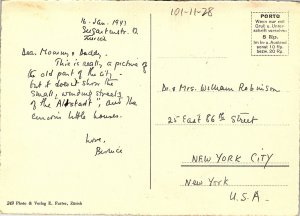 16 Jan. 1947
Zürich
101-11-28
PORTO
Wenn nur mit
Gruß u. Unter-
schrift versehen
5 Rp.
Im In- u. Ausland
sonst 10 bezw. 20 Rp.
Dear Mommy & Daddy,
This is really a picture of
the old part of the city
but it doesn't show the
small, winding streets
of the "Altstadt", and the
little houses.
Love,
Bernice
Dr & Mrs. William Robinson
25 East 86th Street
NEW YORK CITY
NEW YORK
U.S.A.
249 Photo & Verlag E. Furter, Zürich